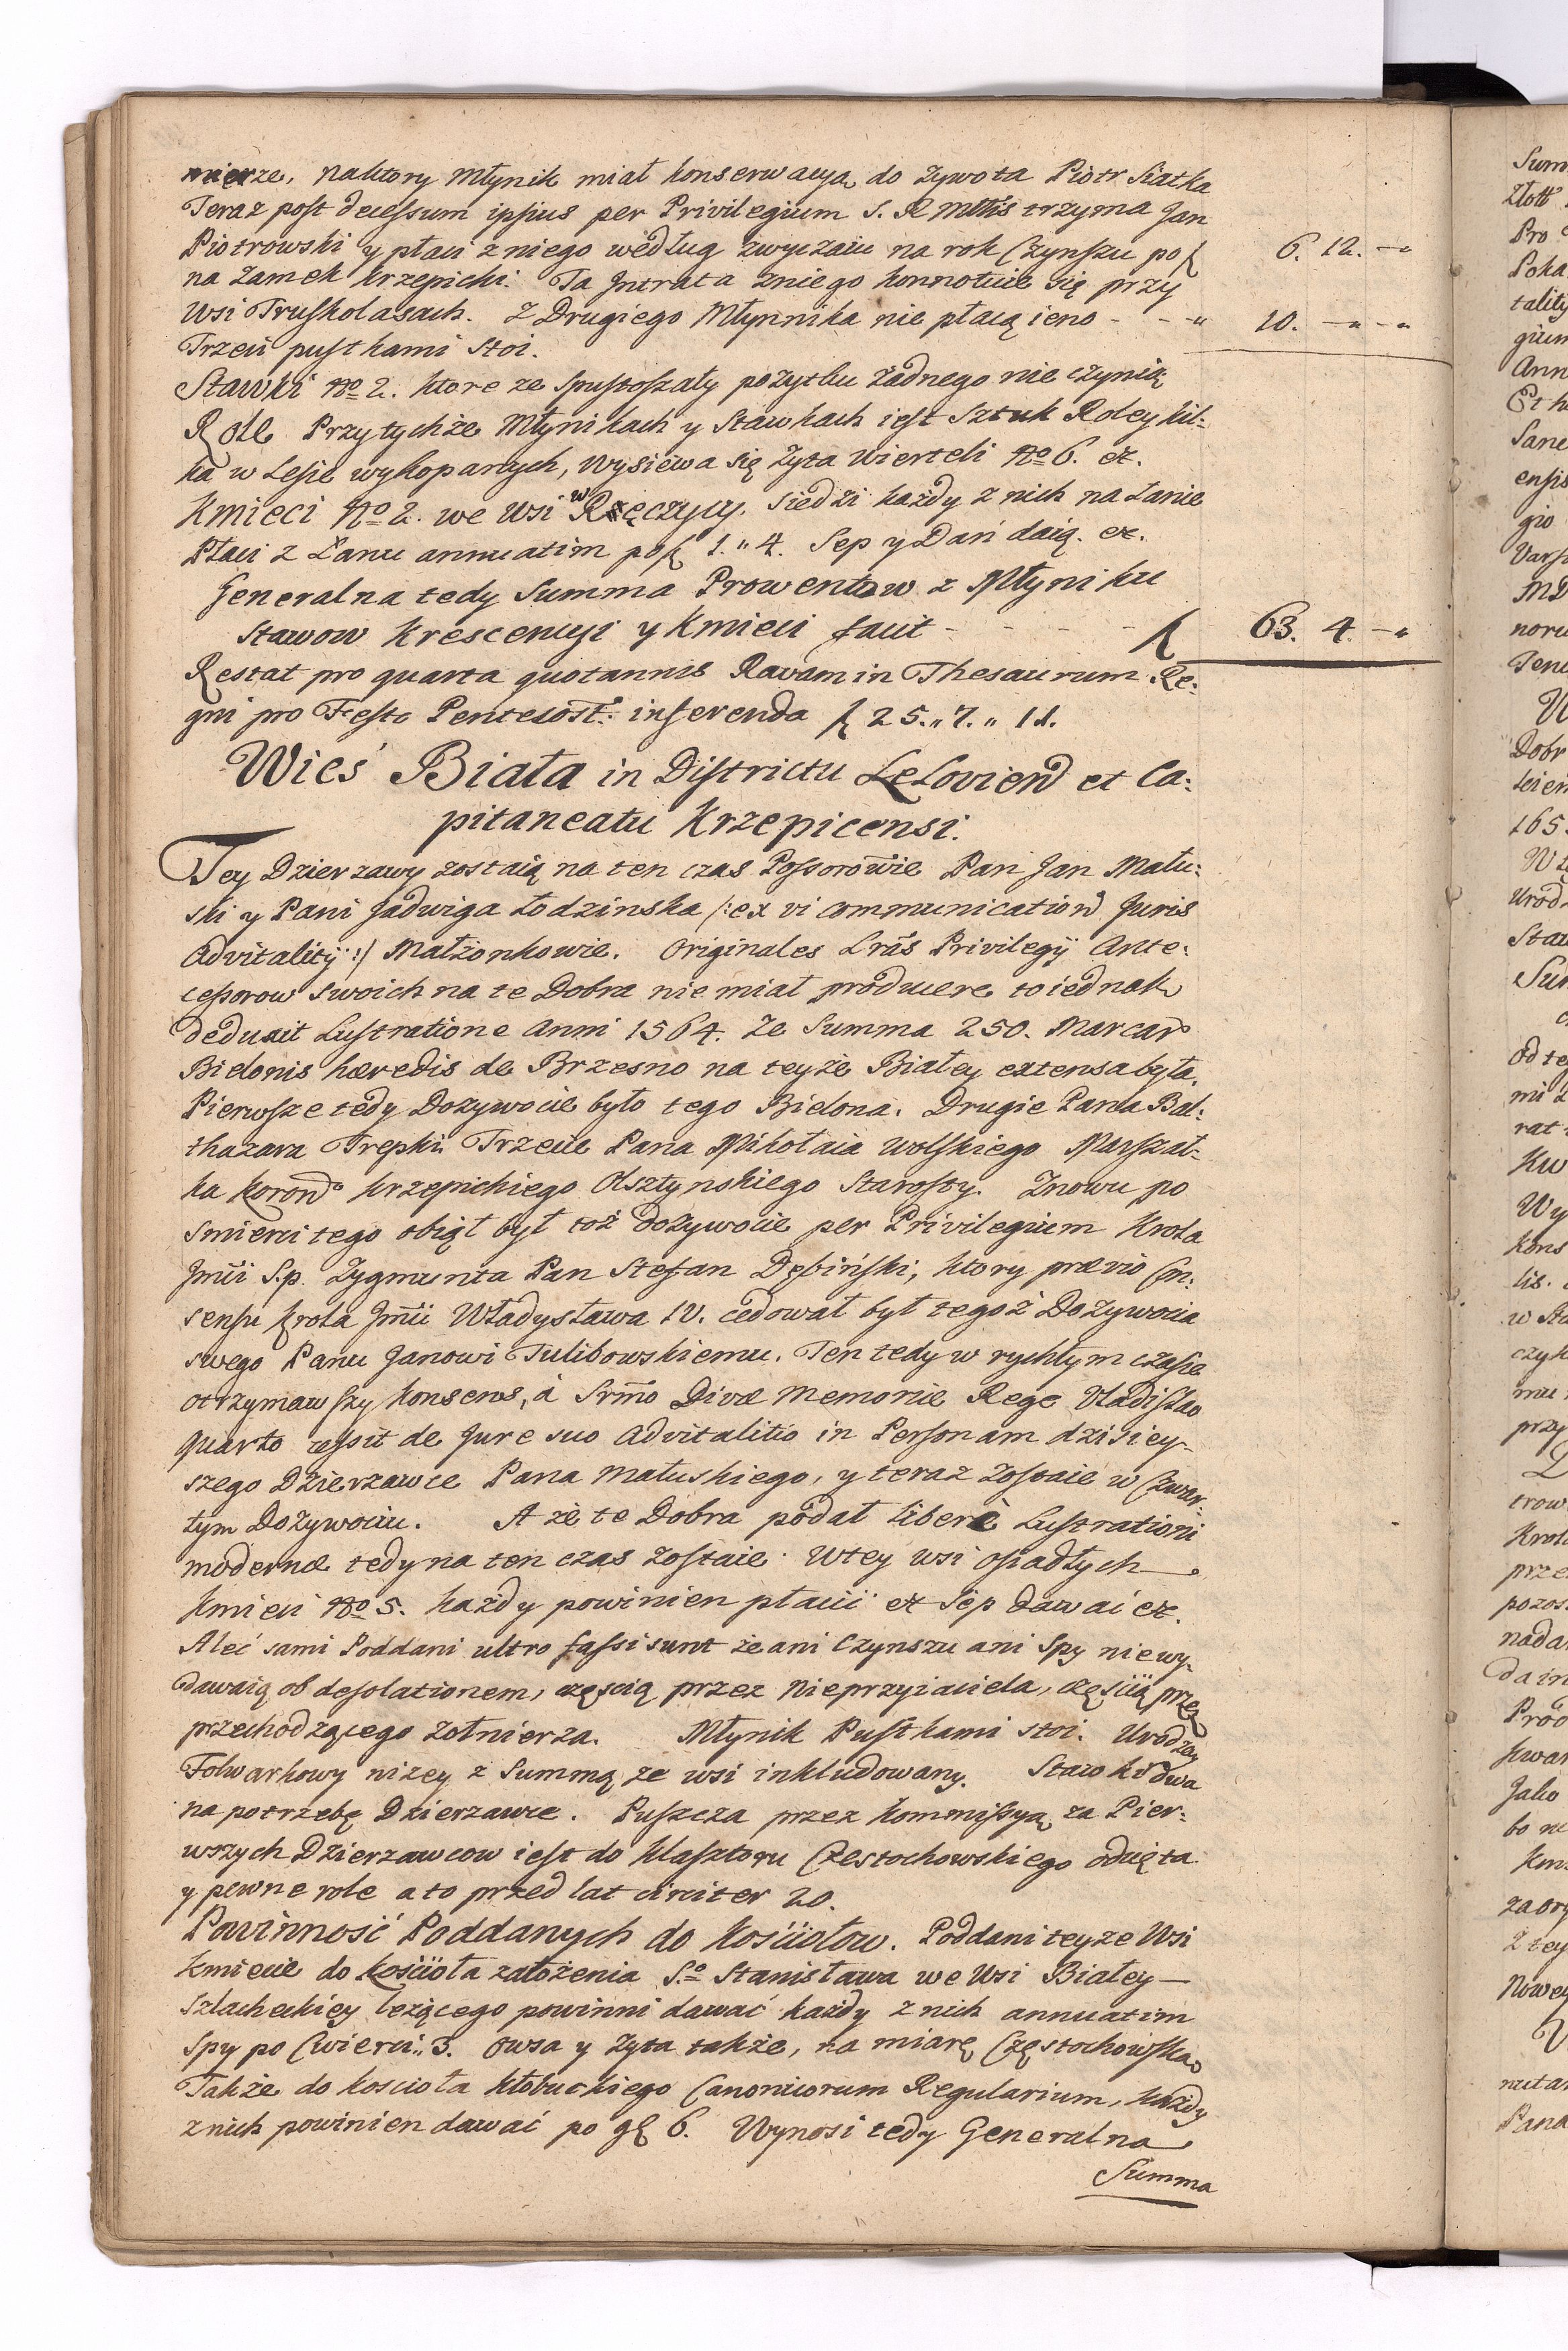 mierze, naktory Młynik miał konserwacyą do Zywota Piotr Siatka
Teraz post decessum ipsius per Privilegium S. R Mttis trzyma Jan
Piotrowski y płaci z niego według zwyczaiu na rok Czynszu po ƒ 6. 12. -"
na Zamek Krzepicki. Ta Intrata zniego konnotuie się przy
Wsi Truskolasach. Z Drugiego Młynnika nie płacą ieno - - -" 10. -"-"
Trzeci pustkami stoi.
Stawki No 2. ktore ze spustoszały pozytku żadnego nie czynią
Role Przytychże Młynikach y Stawkach iest Sztuk Roley kil:
ka w Lesie wykopanych, wysiewa się Zyta Wierteli No 6. etc.
Kmieci No 2. we Wsi w Ręczycy. Siedzi każdy z nich na Łanie
Płaci z Łanu annuatim po ƒ 1." 4. Sep y Dań daią. etc.
Generalna tedy Summa Prowentow z Młyniku
Stawow Krescencyi y Kmieci facit - - - - - ƒ 63. 4. -"
Restat pro quarta quotannis Ravam in Thesaurum Re:
gni pro Festo Pentecost: inferenda ƒ 25." 7." 11.
Wieś Biała in Districtu Leloviens et Ca:
pitaneatu Krzepicensi.
Tey Dzierzawy zostaią na ten czas Possorowie Pan Jan Matu:
ski y Pani Jadwiga Łodzinska /:ex vi communication Juris
Advitalitÿ:/ Małżonkowie. Originales Lrãs Privilegÿ Ante:
cessorow swoich na te Dobra nie miał producere to iednak
deduxit Lustratione Anni 1564. Ze Summa 250. Marcar
Bielonis hæredis de Brzesno na teyże Białey extensa była.
Pierwsze tedy Dozywocie było tego Bielona. Drugie Pana Bal:
thazara Trepki. Trzecie Pana Mikołaia Wolskiego Marszał-
ka Koron Krzepickiego Olsztynskiego Starosty. Znowu po
smierci tego obiął był toż dożywocie per Privilegium Krola
Jmci S.p. Zygmunta Pan Stefan Dębiński, ktory prævio Con:
sensu Krola Jmci Władysława IV. cedował był tegoż Dożywocia
swego Panu Janowi Tulibowskiemu. Ten tedy w rychłym czasie
otrzymawszy konsens, à Srmo Divæ Memoriæ Rege Vladislao
quarto cessit de Jure suo Advitalitio in Personam dzisiey-
szego Dzierzawce Pana Matuskiego, y teraz zostaie w Czwar:
tym Dożywociu. A że te Dobra podał liberè Lustrationi
modernæ tedy na ten czas zostaie. Wtey wsi osiadłych
Kmieci No 5. każdy powinien płacić etc Sep dawać etc.
Aleć sami Poddani ultro fassi sunt że ani Czynszu ani Spy niewy-
dawaią ob desolationem, częscią przez Nieprzyiaciela, częścią przez
przechodzącego żołnierza. Młynik Pustkami stoi. Urodzay
Folwarkowy nizey z Summą ze wsi inkludowany. Stawki dwa
na potrzebę Dzierzawce. Puszcza przez Kommissyą za Pier:
wszych Dzierzawcow iest do Klasztoru Czestochowskiego odięta
y pewne role a to przed lat circiter 20.
Powinność Poddanych do Kościołow. Poddani teyze Wsi
Kmiecie do kościoła założenia So Stanisława we Wsi Białey —
Szlacheckiey leżącego powinni dawać każdy z nich annuatim
Spy po Cwierci: 3. Owsa y Zyta także, na miarę Częstochowską
Także do koscioła kłobuckiego Canonicorum Regularium, każdy
z nich powinien dawać po gƒ 6. Wynosi tedy Generalna
Summa